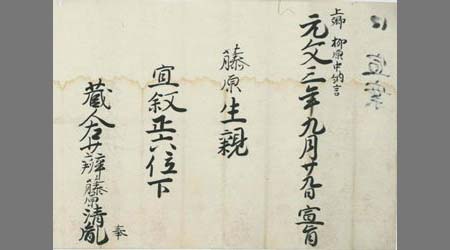 口 宣案
上卿 柳原中納言
元文二年九月廿九日 宣旨
藤原生親
宣叙正六位下
蔵人右少辨藤原清胤 奉